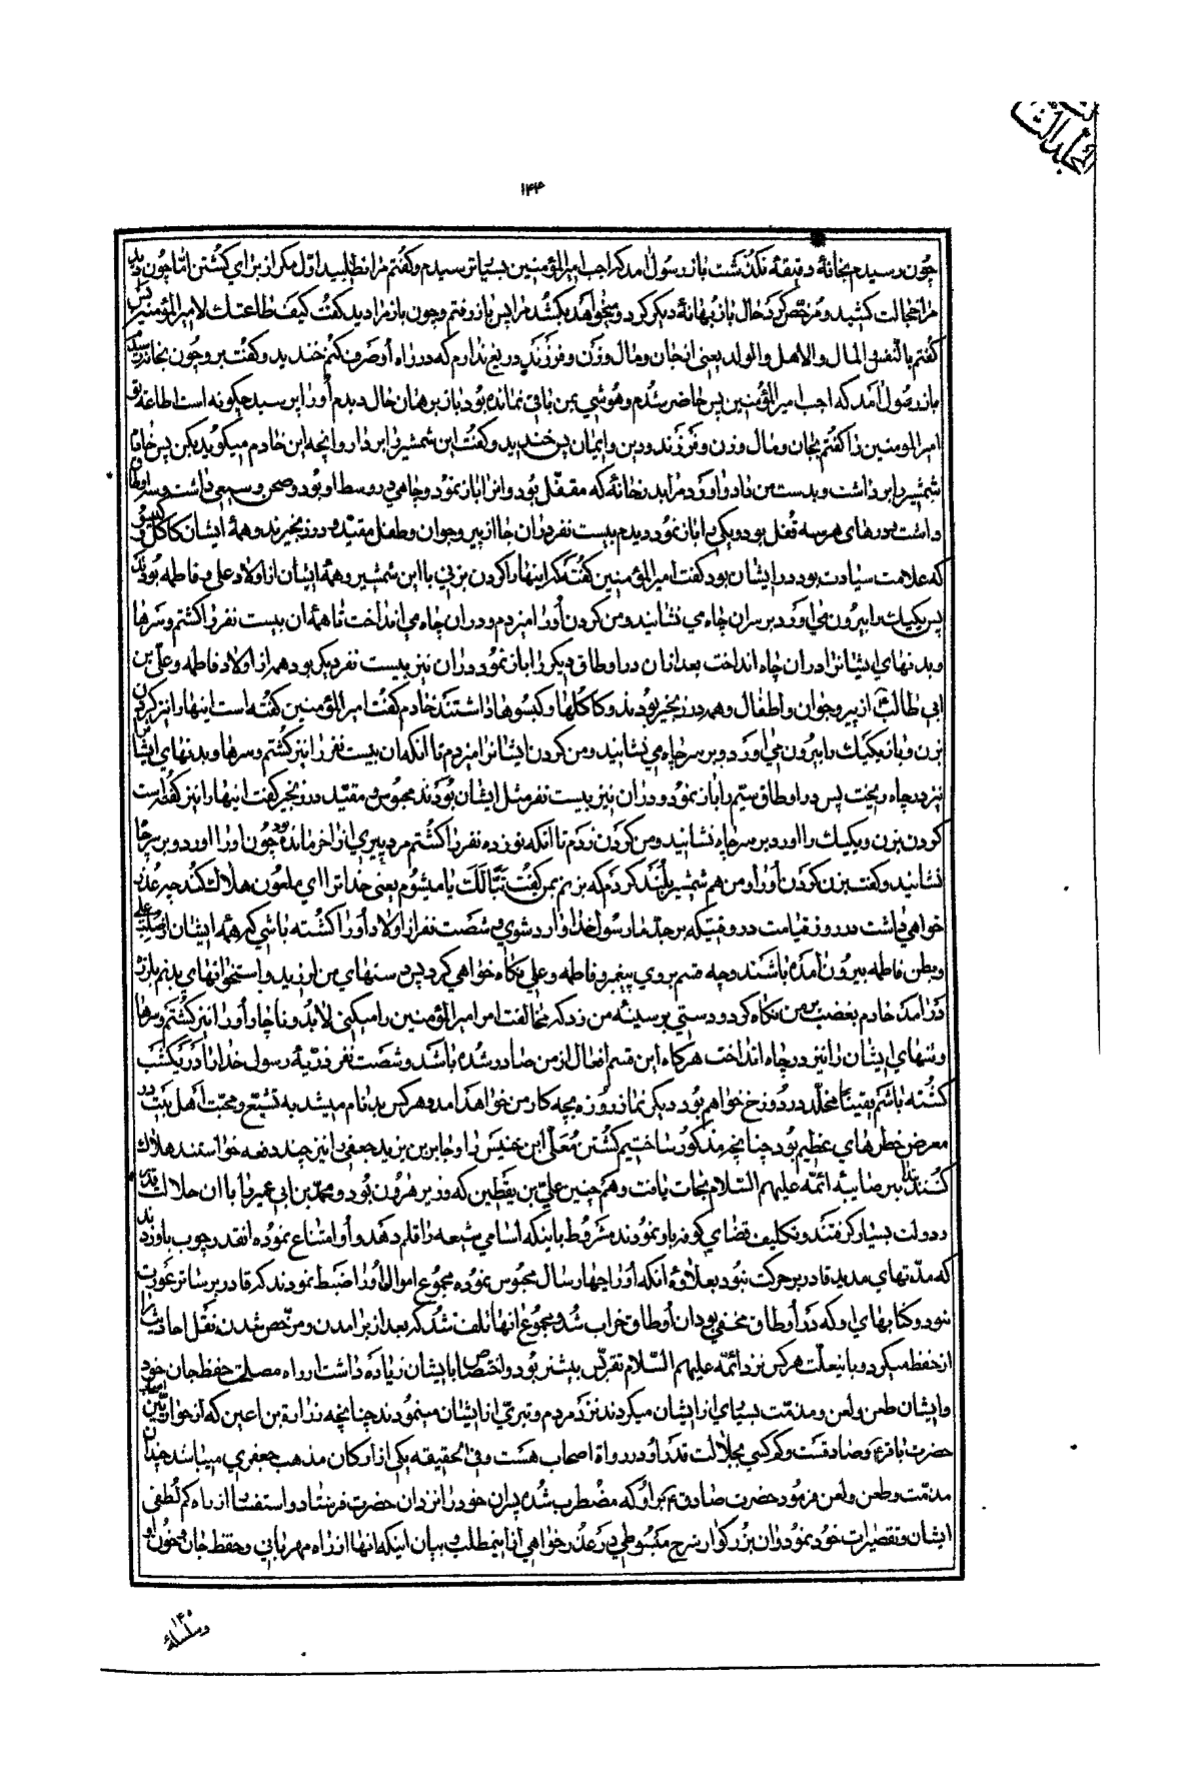 المجلد الثالث
۱۴۴
چون رسیدم بخانهٔ دقیقهٔ نکذشت باز رسول آمد که اجب امیرالمؤمنین بسیار ترسیدم و کفتم مرا نطلبید اول مکر از برای کشتن اما چون دید
مرا خجالت کشید و مرخص کرد حال باز بهانهٔ دیکر کرد و میخواهد بکشد مرا پس باز رفتم و چون باز مرا دید کفت کیف طاعتك لامیرالمؤمنین پس
کفتم بالنفس و المال و الاهل و الولد یعنی از جان و مال و زن و فرزند دریغ ندارم که در راه او صرف کنم خندید و کفت برو چون بخانه رسیدم
باز رسول آمد که اجب امیرالمؤمنین پس حاضر شدم و هوشی بمن باقی نمانده بود باز بر همان حال دیدم او را پرسید چکونه است اطاعة تو
امیرالمومنین را کفتم بجان و مال و زن و فرزند و دین و ایمان پس خندید و کفت این شمشیر را بردار و انچه این خادم میکوید بکن پس خادم
شمشیر را برداشت و بدست من داد و اورد مرا بدر خانهٔ که مقفل بود و انرا باز نمود و چاهی در وسط او بود و صحن وسیعی داشت و سه اوطاق
داشت درهای هر سه قفل بود و یکی را باز نمود دیدم بیست نفر در ان جا از پیر و جوان و طفل مقید در زنجیرند و همهٔ ایشان کاکل و کیسو
که علامت سیادت بود در ایشان بود کفت امیرالمؤمنین کفته که اینها را کردن بزنی با این شمشیر و همهٔ ایشان از اولاد علی و فاطمه بودند
پس یکیك را بیرون می اورد بر سر ان چاه می نشانید و من کردن او را میزدم و در ان چاه می انداخت تا همهٔ ان بیست نفر را کشتم و سرها
و بدنهای ایشانرا در ان چاه انداخت بعد از ان در اوطاق دیکر را باز نمود در ان نیز بیست نفر دیکر بود همه از اولاد فاطمه و علی بن
ابی طالب از پیر و جوان و اطفال و همه در زنجیر بودند و کاکلها و کیسوها داشتند خادم کفت امیرالمؤمنین کفته است اینها را نیز کردن
بزن و باز یکیك را بیرون می اورد و بر سر چاه می نشانید و من کردن ایشانرا میزدم تا انکه ان بیست نفر را نیز کشتم و سرها و بدنهای ایشانرا
نیز در چاه ریخت پس در اوطاق سیم را باز نمود و در ان نیز بیست نفر مثل ایشان بودند محبوس و مقید در زنجیر کفت اینها را نیز کفته است
کردن بزن و یکیك را اورد بر سر چاه نشانید و من کردن زدم تا انکه نوزده نفر را کشتم مرد پیری از اخر مانده بود چون او را اورد و بر سر چاه
نشانید و کفت بزن کردن او را و من هم شمشیر بلند کردم که بزنم بمن کفت تبّا لك یا میشوم یعنی خدا ترا ای ملعون هلاك کند چه عذر
خواهی داشت در روز قیامت در وقتیکه بر جد ما رسول خدا وارد شوی و شصت نفر از اولاد او را کشته باشی که همهٔ ایشان از صلب علی
و بطن فاطمه بیرون آمده باشند و چه قسم بروی پیغمبر و فاطمه و علی نکاه خواهی کرد پس دستهای من لرزید و استخوانهای بدنم بلرزه
درآمد خادم بغضب بمن نکاه کرد و دستی بر سینهٔ من زد که مخالفت امر امیرالمؤمنین را میکنی لابد و ناچار او را نیز کشتم و سرها
و تنهای ایشان را نیز در چاه انداخت هرکاه این قسم افعال از من صادر شده باشد و شصت نفر ذریهٔ رسول خدا را در یکشب
کشته باشم یقینًا مخلد در دوزخ خواهم بود دیکر نماز و روزه بچه کار من خواهد امد و هرکس بدنام میشد به تشیع و محبت اهل بیت در
معرض خطرهای عظیم بود چنانچه مذکور ساختیم کشتن معلی ابن خنیس را و جابر بن یزید جعفی را نیز چند دفعه خواستند هلاك
کنند بتدابیر صایبهٔ ائمه علیهم السلام نجات یافت و هم چنین علی بن یقطین که وزیر هرون بود و محمد بن ابی عمیر را با ان جلالت قدر
و دولت بسیار کرفتند و تکلیف قضای کوفه باو نمودند مشروط باینکه اسامی شیعه را قلم دهد و او امتناع نموده انقدر چوب باو زدند
که مدتهای مدید قادر بر حرکت نبود بعلاوهٔ انکه او را چهار سال محبوس نموده مجموع اموال او را ضبط نمودند که قادر بر ساتر عورت
نبود و کتابهای او که در اوطاق مخفی بود ان اوطاق خراب شد و مجموع انها تلف شد که بعد از برامدن و مرخص شدن نقل احادیث را
از حفظ میکرد و باینعلت هرکس نزد ائمه علیهم السلام تقربش بیشتر بود و اختصاص با ایشان زیاده داشت از راه مصلحت حفظ جان خود
و ایشان طعن و لعن و مذمت بسیاری از ایشان میکردند نزد مردم و تبری از ایشان مینمودند چنانچه زرارة بن اعین که از حواریین اصحاب
حضرت باقر و صادقست و کم کسی بجلالت قدر او در رواة اصحاب هست و فی الحقیقه یکی از ارکان مذهب جعفری میباشد چندان
مذمت و طعن و لعن فرمود حضرت صادق ع بر او که مضطرب شده پسران خود را نزد ان حضرت فرستاد و استفسار از راه کم لطفی
ایشان و تقصیرات خود نمود و ان بزرکوار شرح مبسوطی در عذرخواهی از اینمطلب و بیان اینکه انها از راه مهربانی و حفظ جان و خون او
و سلسلهٔ
۱۴۵